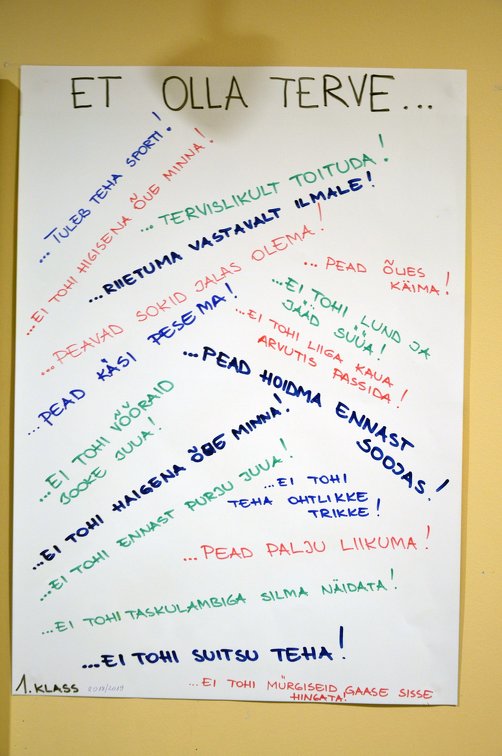 ET OLLA TERVE...
...TULEB TEHA SPORTI!
...EI TOHI HIGISENA ÕUE MINNA!
...TERVISLIKULT TOITUDA!
...RIIETUMA VASTAVALT ILMALE!
...PEAVAD SOKID JALAS OLEMA!
...PEAD ÕUES
KÄIMA!
...PEAD KÄSI PESEMA!
...EI TOHI LUND JA
JÄÄD SÜÜA!
...EI TOHI LIIGA KAUA
ARVUTIS PASSIDA!
...PEAD HOIDMA ENNAST
SOOJAS!
...EI TOHI VÕÕRAID
JOOKE JUUA!
...EI TOHI HAIGENA ÕUE MINNA!
...EI TOHI ENNAST PURJU JUUA!
...EI TOHI
TEHA OHTLIKKE
TRIKKE!
...PEAD PALJU LIIKUMA!
...EI TOHI TASKULAMBIGA SILMA NÄIDATA!
...EI TOHI SUITSU TEHA!
...EI TOHI MÜRGISEID GAASE SISSE
HINGATA!
1. KLASS 2018/2019